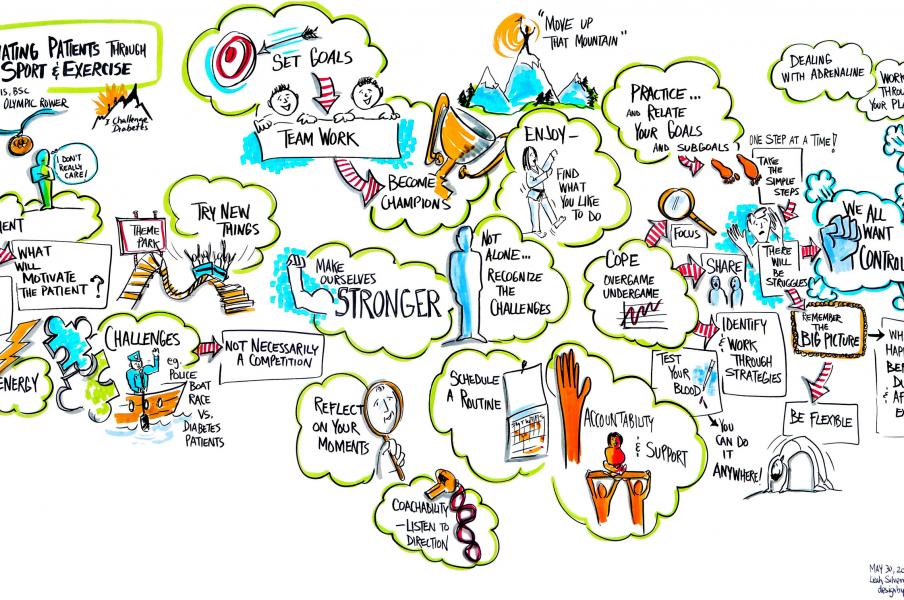 ATING PATIENTS THROUGH
SPORT & EXERCISE
IS, BSC
OLYMPIC ROWER
I Challenge
Diabetes
I DON'T
REALLY
CARE!
ENT
WHAT
WILL
MOTIVATE
THE PATIENT?
ENERGY
THEME
PARK
TRY NEW
THINGS
CHALLENGES
eg.
POLICE
BOAT
RACE
VS.
DIABETES
PATIENTS
NOT NECESSARILY
A COMPETITION
SET GOALS
TEAM WORK
BECOME
CHAMPIONS
"MOVE UP
THAT MOUNTAIN"
ENJOY—
FIND
WHAT
YOU LIKE
TO DO
MAKE
OURSELVES
STRONGER
NOT
ALONE...
RECOGNIZE
THE
CHALLENGES
REFLECT
ON YOUR
MOMENTS
COACHABILITY
—LISTEN TO
DIRECTION
SCHEDULE
A ROUTINE
ACCOUNTABILITY
& SUPPORT
PRACTICE...
AND RELATE
YOUR GOALS
AND SUBGOALS
ONE STEP AT A TIME!
TAKE
THE
SIMPLE
STEPS
FOCUS
COPE
OVERGAME
UNDERGAME
SHARE
THERE
WILL BE
STRUGGLES
IDENTIFY
& WORK
THROUGH
STRATEGIES
TEST
YOUR
BLOOD
YOU
CAN DO
IT
ANYWHERE!
REMEMBER
THE
BIG PICTURE
BE FLEXIBLE
DEALING
WITH ADRENALINE
WORK
THROU
YOUR PLA
WE ALL
WANT
CONTROL
WH
HAPP
BEF
DU
& AF
EX
MAY 30, 20
Leah Silver
designby